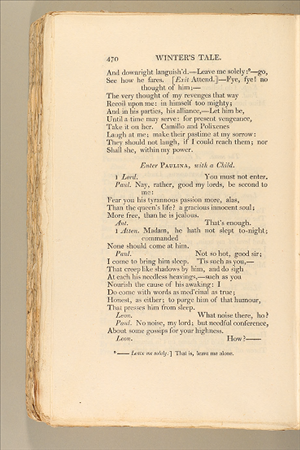 470 WINTER'S TALE.
And downright languish'd.—Leave me solely:*—go,
See how he fares. [Exit Attend.]—Fye, fye! no
thought of him;—
The very thought of my revenges that way
Recoil upon me: in himself too mighty;
And in his parties, his alliance,—Let him be,
Until a time may serve: for present vengeance,
Take it on her. Camillo and Polixenes
Laugh at me; make their pastime at my sorrow:
They should not laugh, if I could reach them; nor
Shall she, within my power.
Enter PAULINA, with a Child.
1 Lord. You must not enter.
Paul. Nay, rather, good my lords, be second to
me:
Fear you his tyrannous passion more, alas,
Than the queen's life? a gracious innocent soul;
More free, than he is jealous.
Ant. That's enough.
1 Atten. Madam, he hath not slept to-night;
commanded
None should come at him.
Paul. Not so hot, good sir;
I come to bring him sleep. 'Tis such as you,—
That creep like shadows by him, and do sigh
At each his needless heavings,—such as you
Nourish the cause of his awaking: I
Do come with words as med'cinal as true;
Honest, as either; to purge him of that humour,
That presses him from sleep.
Leon. What noise there, ho?
Paul. No noise, my lord; but needful conference,
About some gossips for your highness.
Leon. How?——
* —— Leave me solely:] That is, leave me alone.